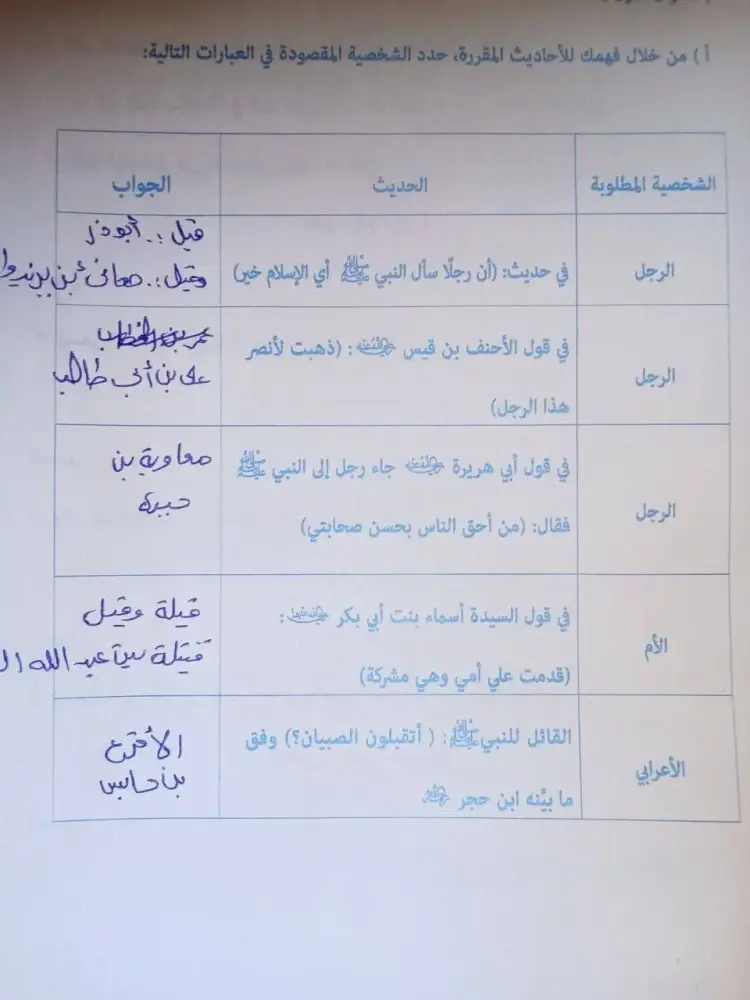 أ ) من خلال فهمك للأحاديث المقررة، حدد الشخصية المقصودة في العبارات التالية:
الشخصية المطلوبة الحديث الجواب
الرجل
في حديث: (أن رجلًا سأل النبي ﷺ أي الإسلام خير)
قيل :. أبوذر
وقيل :. هانئ بن يزيد
الرجل
في قول الأحنف بن قيس رضي الله عنه : (ذهبت لأنصر
هذا الرجل)
عمر بن الخطاب
علي بن أبي طالب
الرجل
في قول أبي هريرة رضي الله عنه جاء رجل إلى النبي ﷺ
فقال: (من أحق الناس بحسن صحابتي)
معاوية بن
حيدة
الأم
في قول السيدة أسماء بنت أبي بكر رضي الله عنهما :
(قدمت علي أمي وهي مشركة)
قيلة وقيل
قتيلة بنت عبد الله
الأعرابي
القائل للنبي ﷺ: ( أتقبلون الصبيان؟) وفق
ما بيَّنه ابن حجر رحمه الله
الأقرع
بن حابس